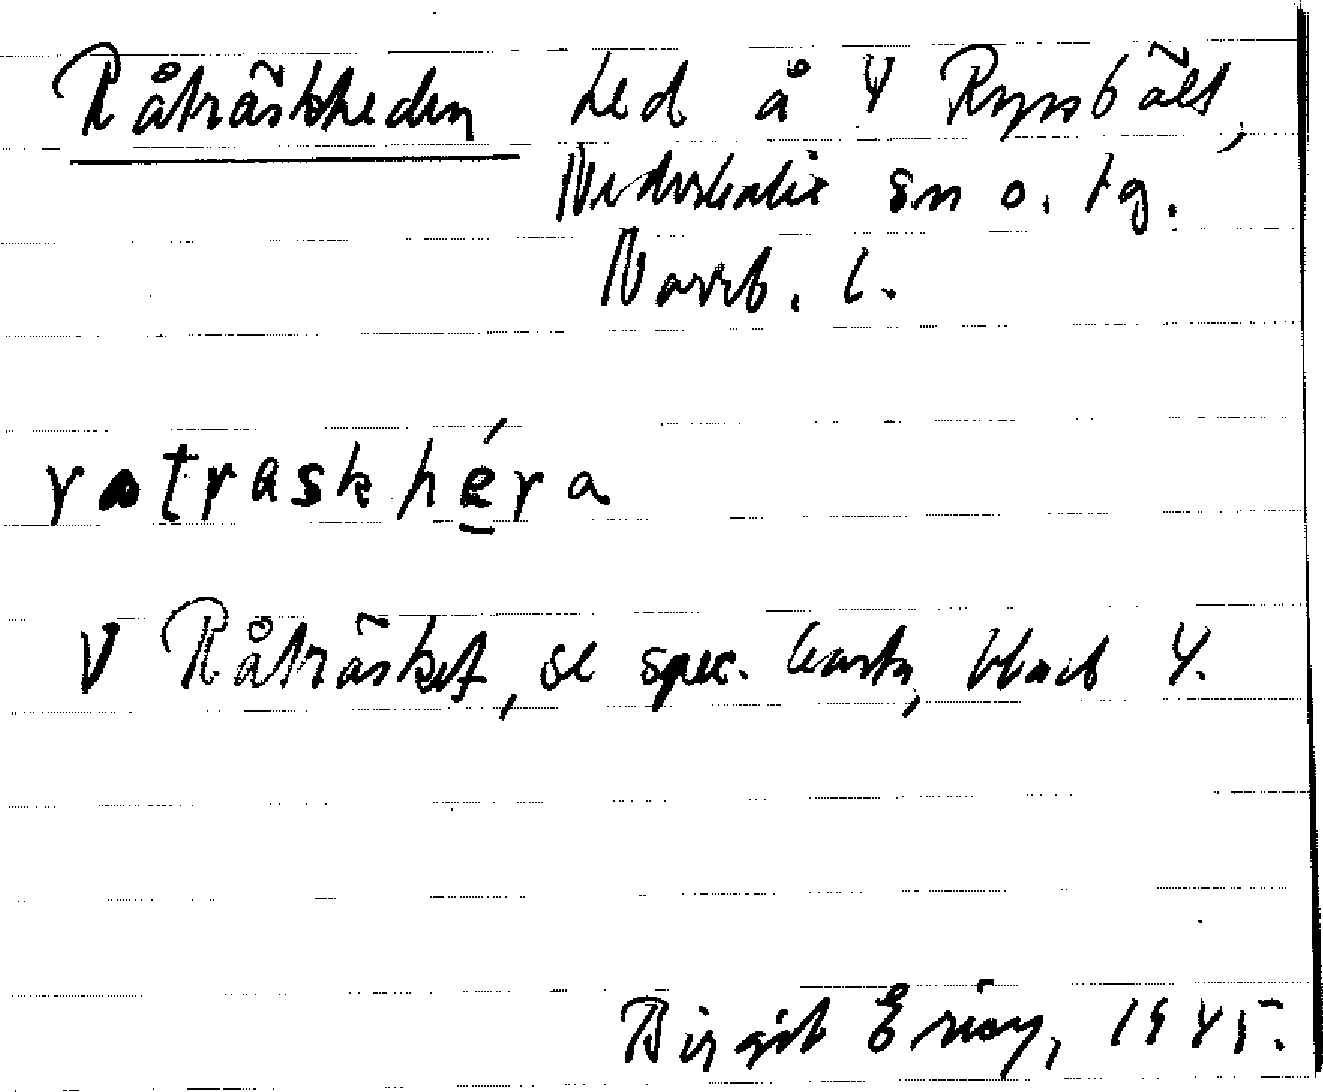 Råträskheden hed å 4 Rynbält,
Nederkalix sn o. tg.
Norrb. l.
ratraskhéra
V Råträsket, se spec. karta, blad 4.
Birgit 1945.